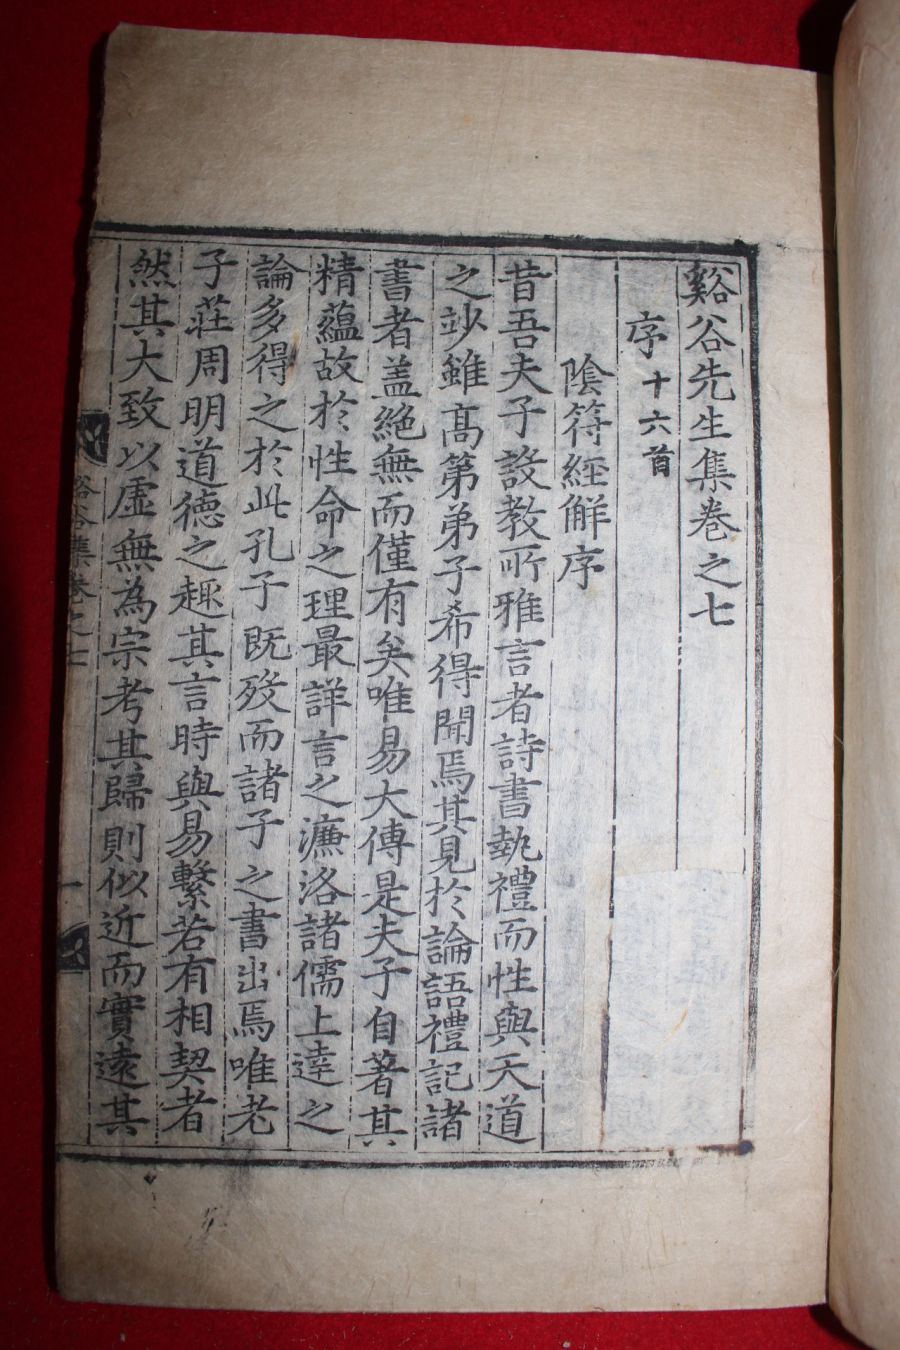 谿谷先生集卷之七
序十六首
陰符經解序
昔吾夫子設教所雅言者詩書執禮而性與天道
之妙雖髙第弟子希得聞焉其見於論語禮記諸
書者盖絕無而僅有矣唯易大傳是夫子自著其
精蘊故於性命之理最詳言之濂洛諸儒上達之
論多得之於此孔子既歿而諸子之書出焉唯老
子莊周明道德之趣其言時與易繫若有相契者
然其大致以虛無為宗考其歸則似近而實遠其
谿谷集卷之七
一